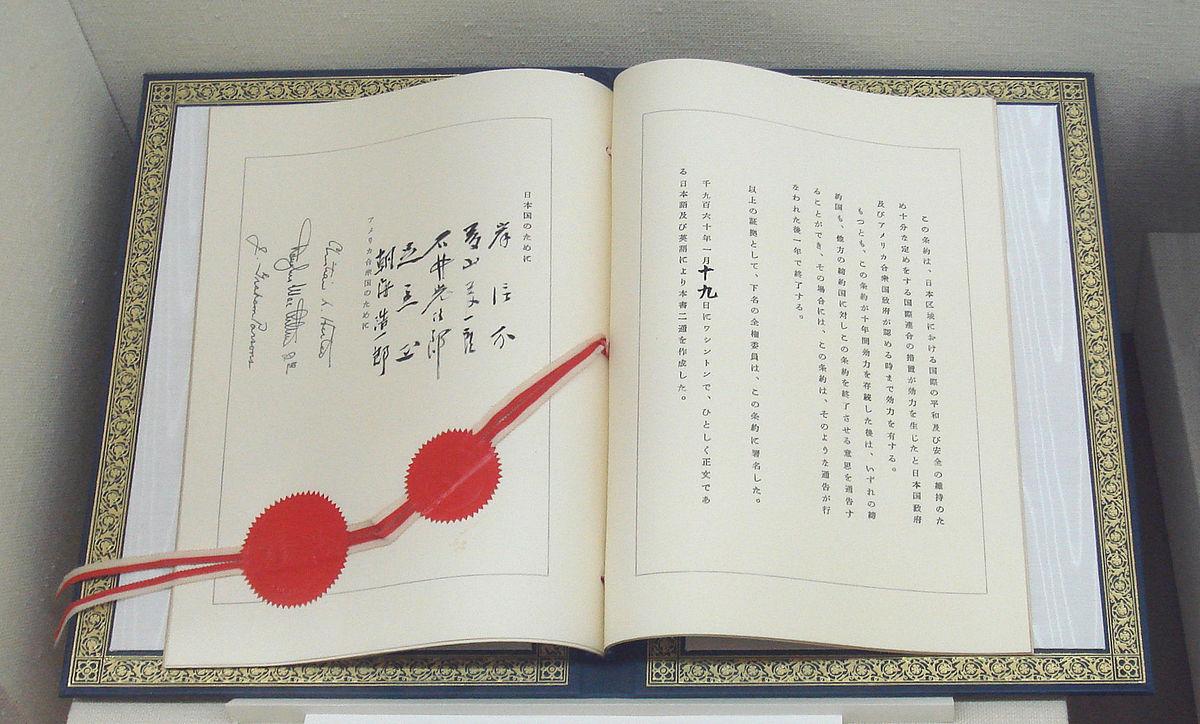 この条約は、日本区域における国際の平和及び安全の維持のた
め十分な定めをする国際連合の措置が効力を生じたと日本国政府
及びアメリカ合衆国政府が認める時まで効力を有する。
もつとも、この条約が十年間効力を存続した後は、いずれの締
約国も、他方の締約国に対しこの条約を終了させる意思を通告す
ることができ、その場合には、この条約は、そのような通告が行
なわれた後一年で終了する。
以上の証拠として、下名の全権委員は、この条約に署名した。
千九百六十年一月十九日にワシントンで、ひとしく正文であ
る日本語及び英語により本書二通を作成した。
日本国のために
岸信介
藤山愛一郎
石井光次郎
足立正
朝海浩一郎
アメリカ合衆国のために
Christian A. Herter
J. Graham Parsons